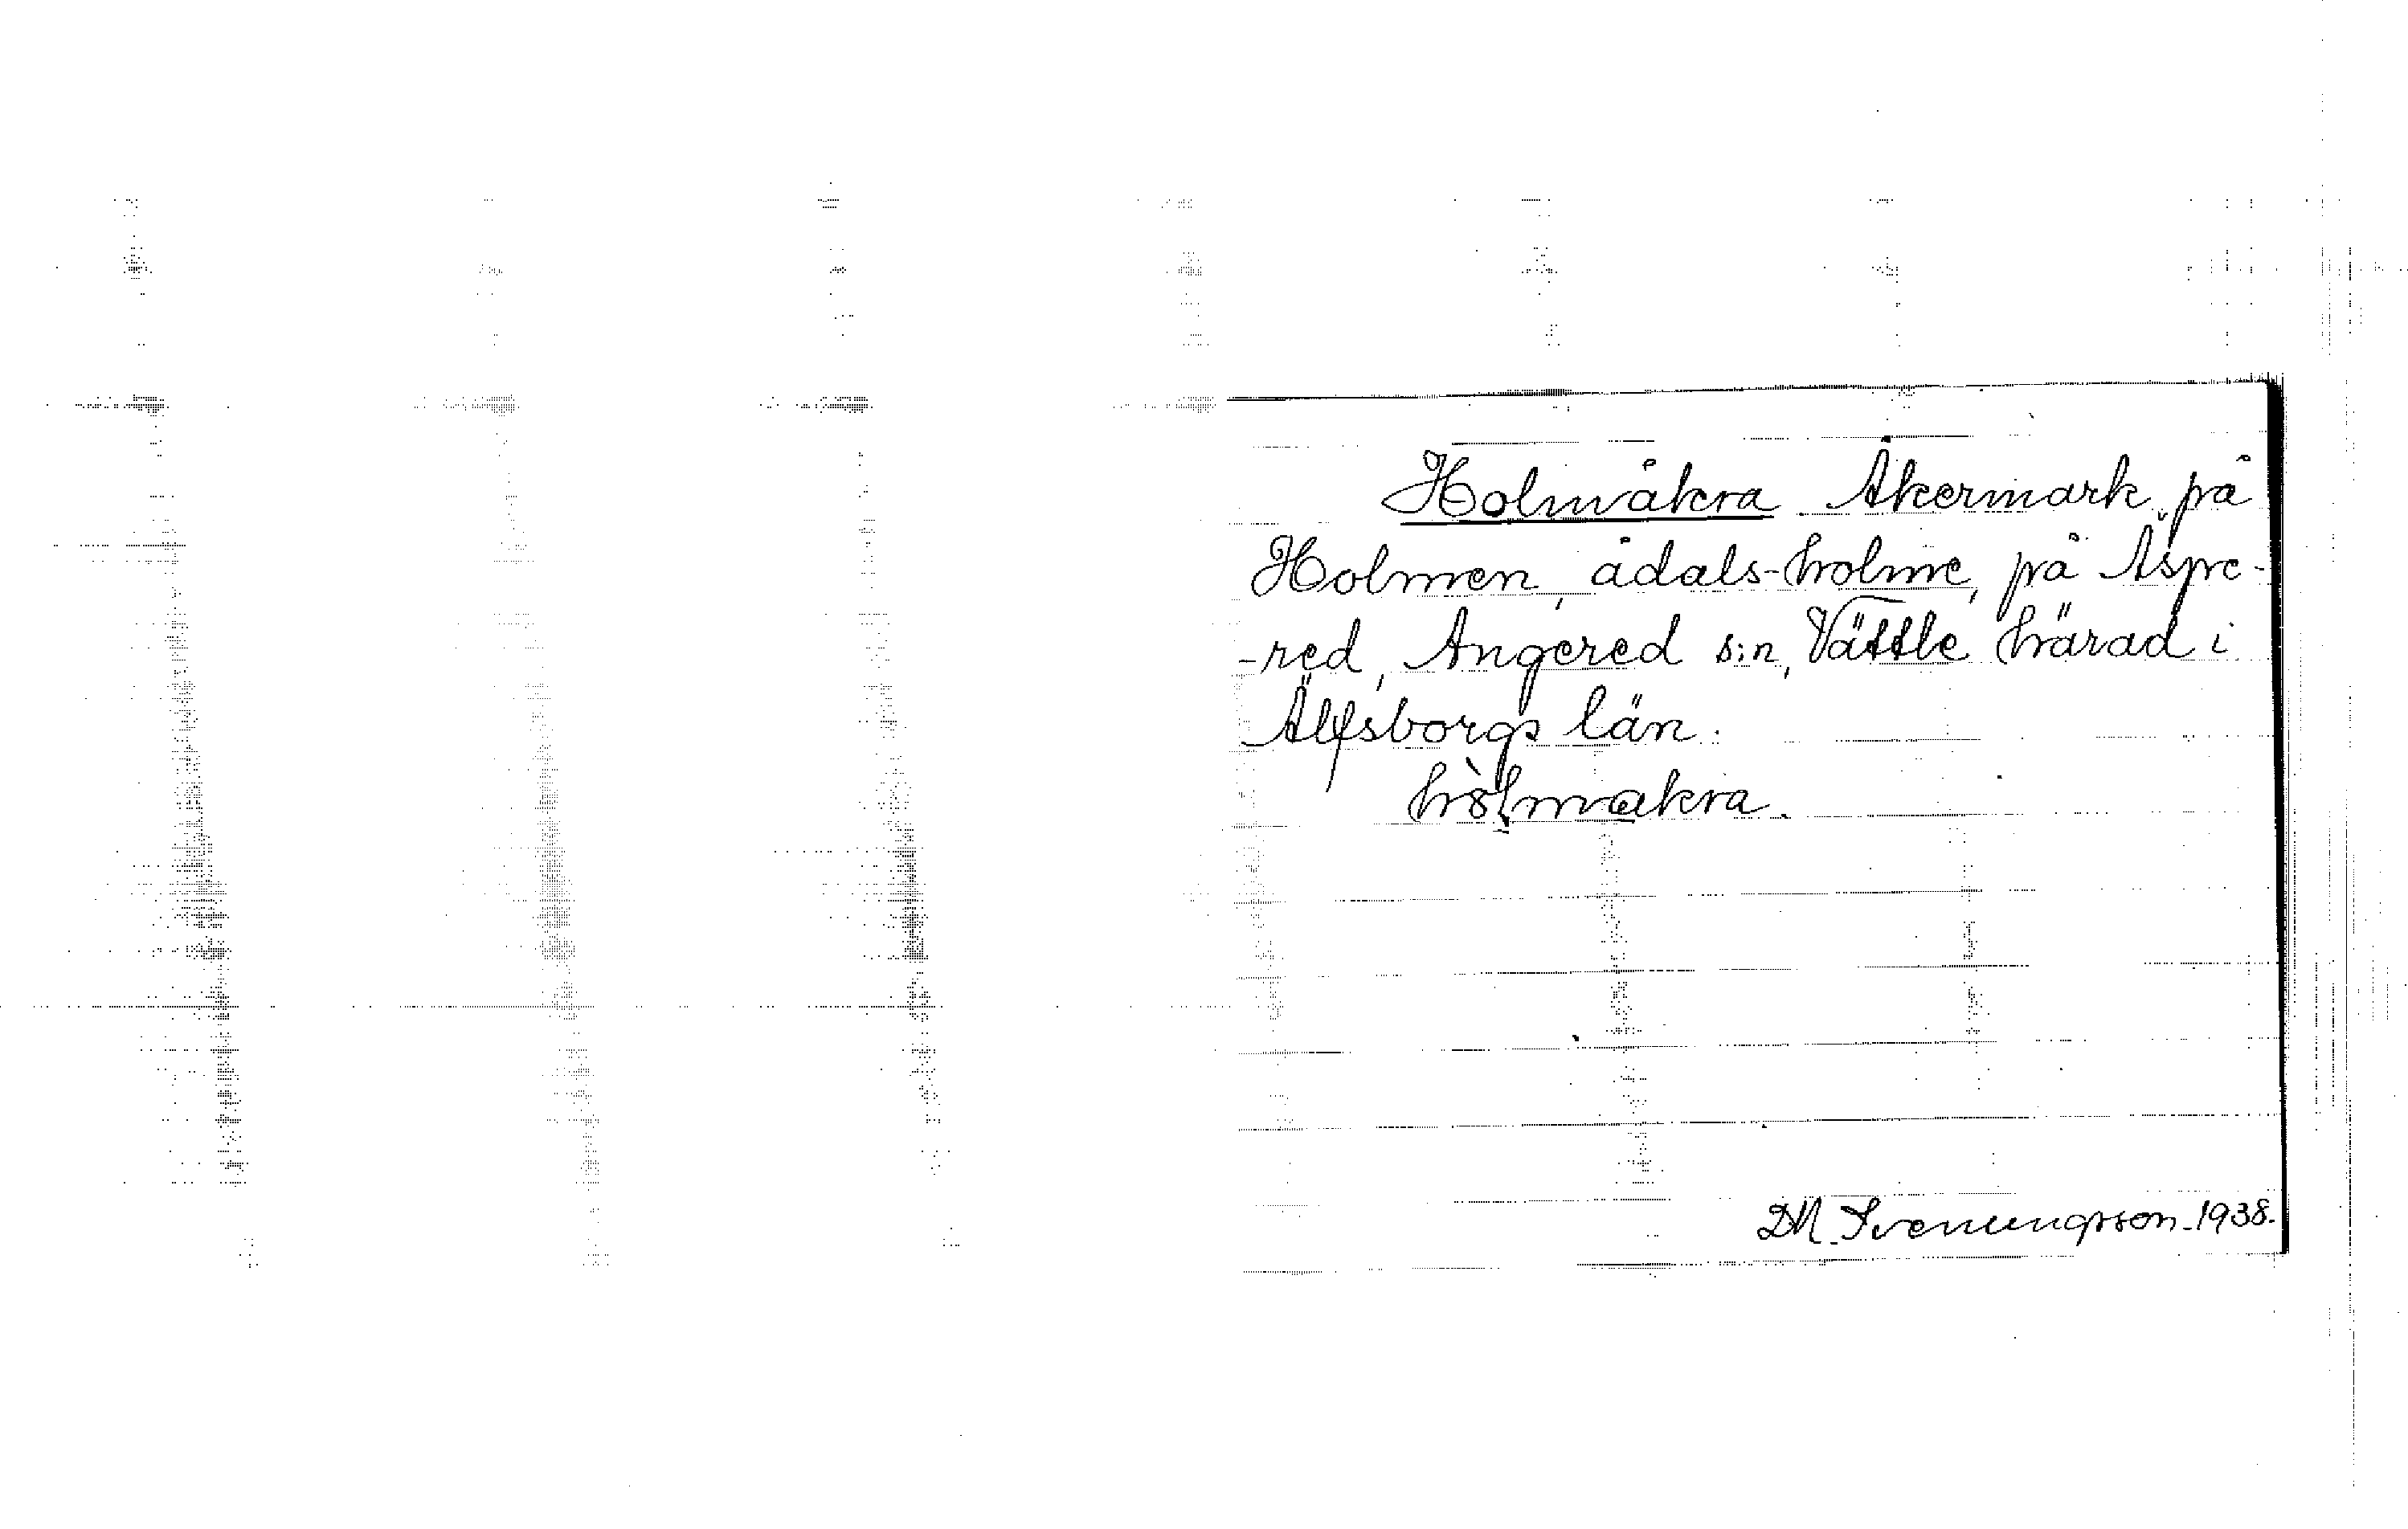 Holmåkra Åkermark på
Holmen, ådals-holme, på Åspe-
-red, Angered s:n, Vättle härad i
Älfsborgs län.
hòlmakra.
DN. Svenungsson. 1938.